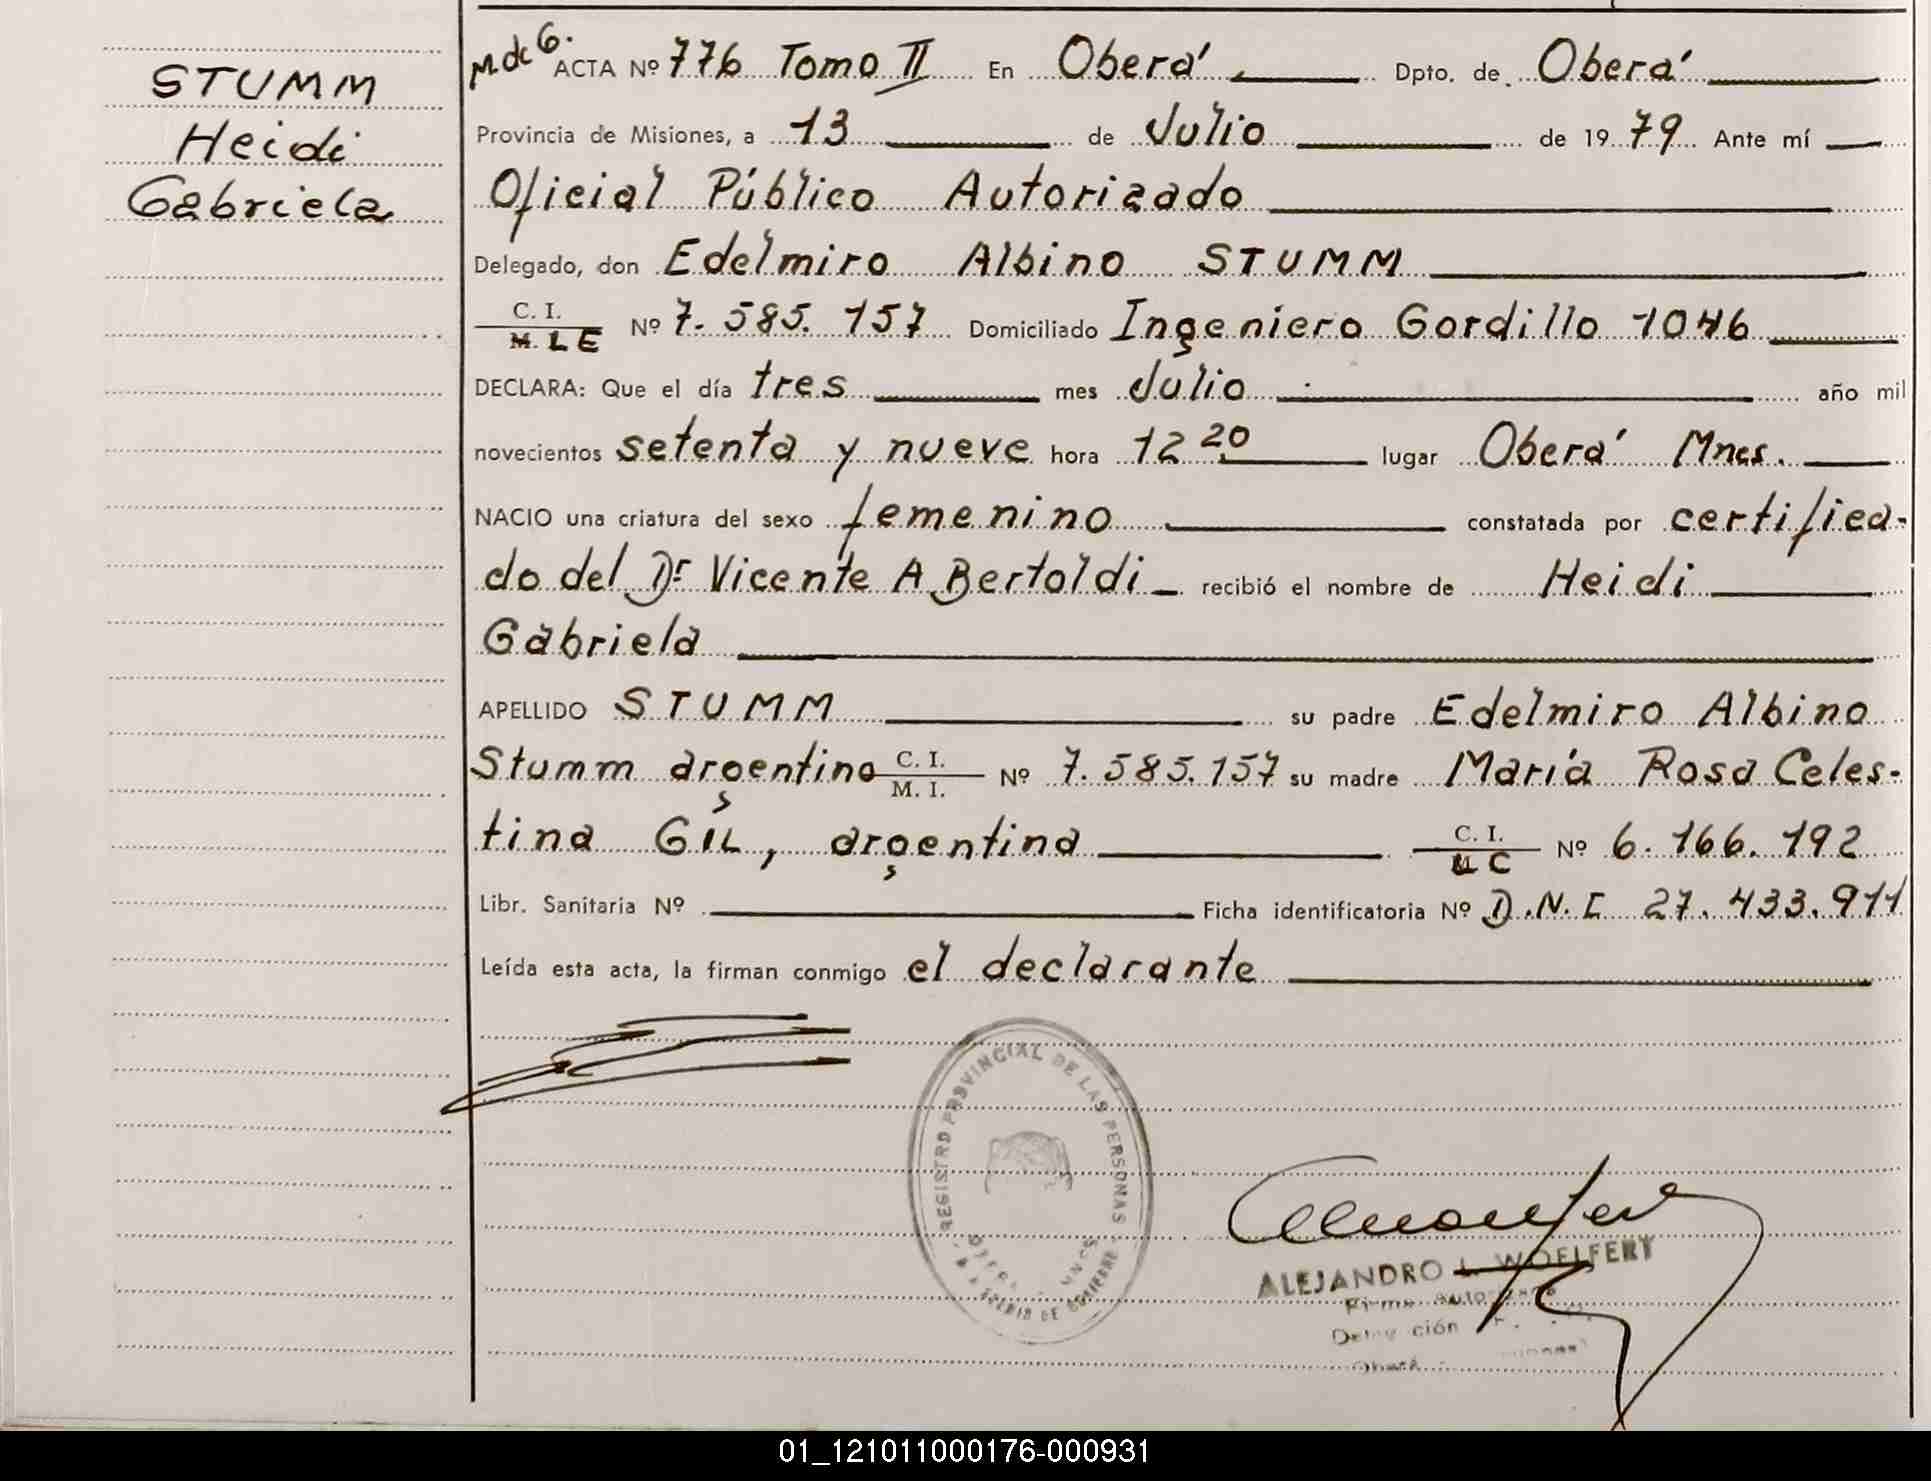 STUMM
Heidi
Gabriela
M de G.
ACTA Nº 776 Tomo II En Oberá Dpto. de Oberá
Provincia de Misiones, a 13 de Julio de 1979 Ante mí
Oficial Público Autorizado
Delegado, don Edelmiro Albino STUMM
C. I.
M. L E Nº 7.585.157 Domiciliado Ingeniero Gordillo 1046
DECLARA: Que el día tres mes Julio año mil
novecientos setenta y nueve hora 12 20 lugar Oberá Mnes.
NACIO una criatura del sexo femenino constatada por certifica-
do del Dr Vicente A Bertoldi recibió el nombre de Heidi
Gabriela
APELLIDO STUMM su padre Edelmiro Albino
Stumm argentino C. I. M. I. Nº 7.585.157 su madre María Rosa Celes-
tina GIL, argentina C. I. M C Nº 6.166.192
Libr. Sanitaria Nº Ficha identificatoria Nº D.N.I 27.433.911
Leída esta acta, la firman conmigo el declarante
REGISTRO PROVINCIAL DE LAS PERSONAS
ALEJANDRO L. WOELFERT
Firma
Oberá
01_121011000176-000931